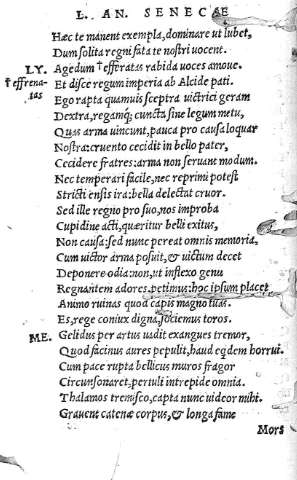 L. AN. SENECAE
Haec te manent exempla, dominare ut lubet,
Dum solita regni fata te nostri vocent.
LY. Agedum †efferatas rabida voces amove.
† effrenatas Et disce regum imperia ab Alcide pati.
Ego rapta quamvis sceptra victrici geram
Dextra, regamq; cuncta sine legum metu,
Quas arma vincunt, pauca pro causa loquar
Nostra: cruento cecidit in bello pater,
Cecidere fratres: arma non servant modum.
Nec temperari facile, nec reprimi potest
Stricti ensis ira: bella delectat cruor.
Sed ille regno pro suo, nos improba
Cupidine acti, quaeritur belli exitus,
Non causa: sed nunc pereat omnis memoria,
Cum victor arma posuit, & victum decet
Deponere odia: non, ut inflexo genu
Regnantem adores, petimus: hoc ipsum placet
Animo ruinas quod capis magno tuas.
Es, rege coniux digna, sociemus toros.
ME. Gelidus per artus vadit exangues tremor,
Quod facinus aures pepulit, haud eqdem horrui.
Cum pace rupta bellicus muros fragor
Circunsonaret, pertuli intrepide omnia.
Thalamos tremisco, capta nunc videor mihi.
Gravent catenae corpus, & longa fame
Mors